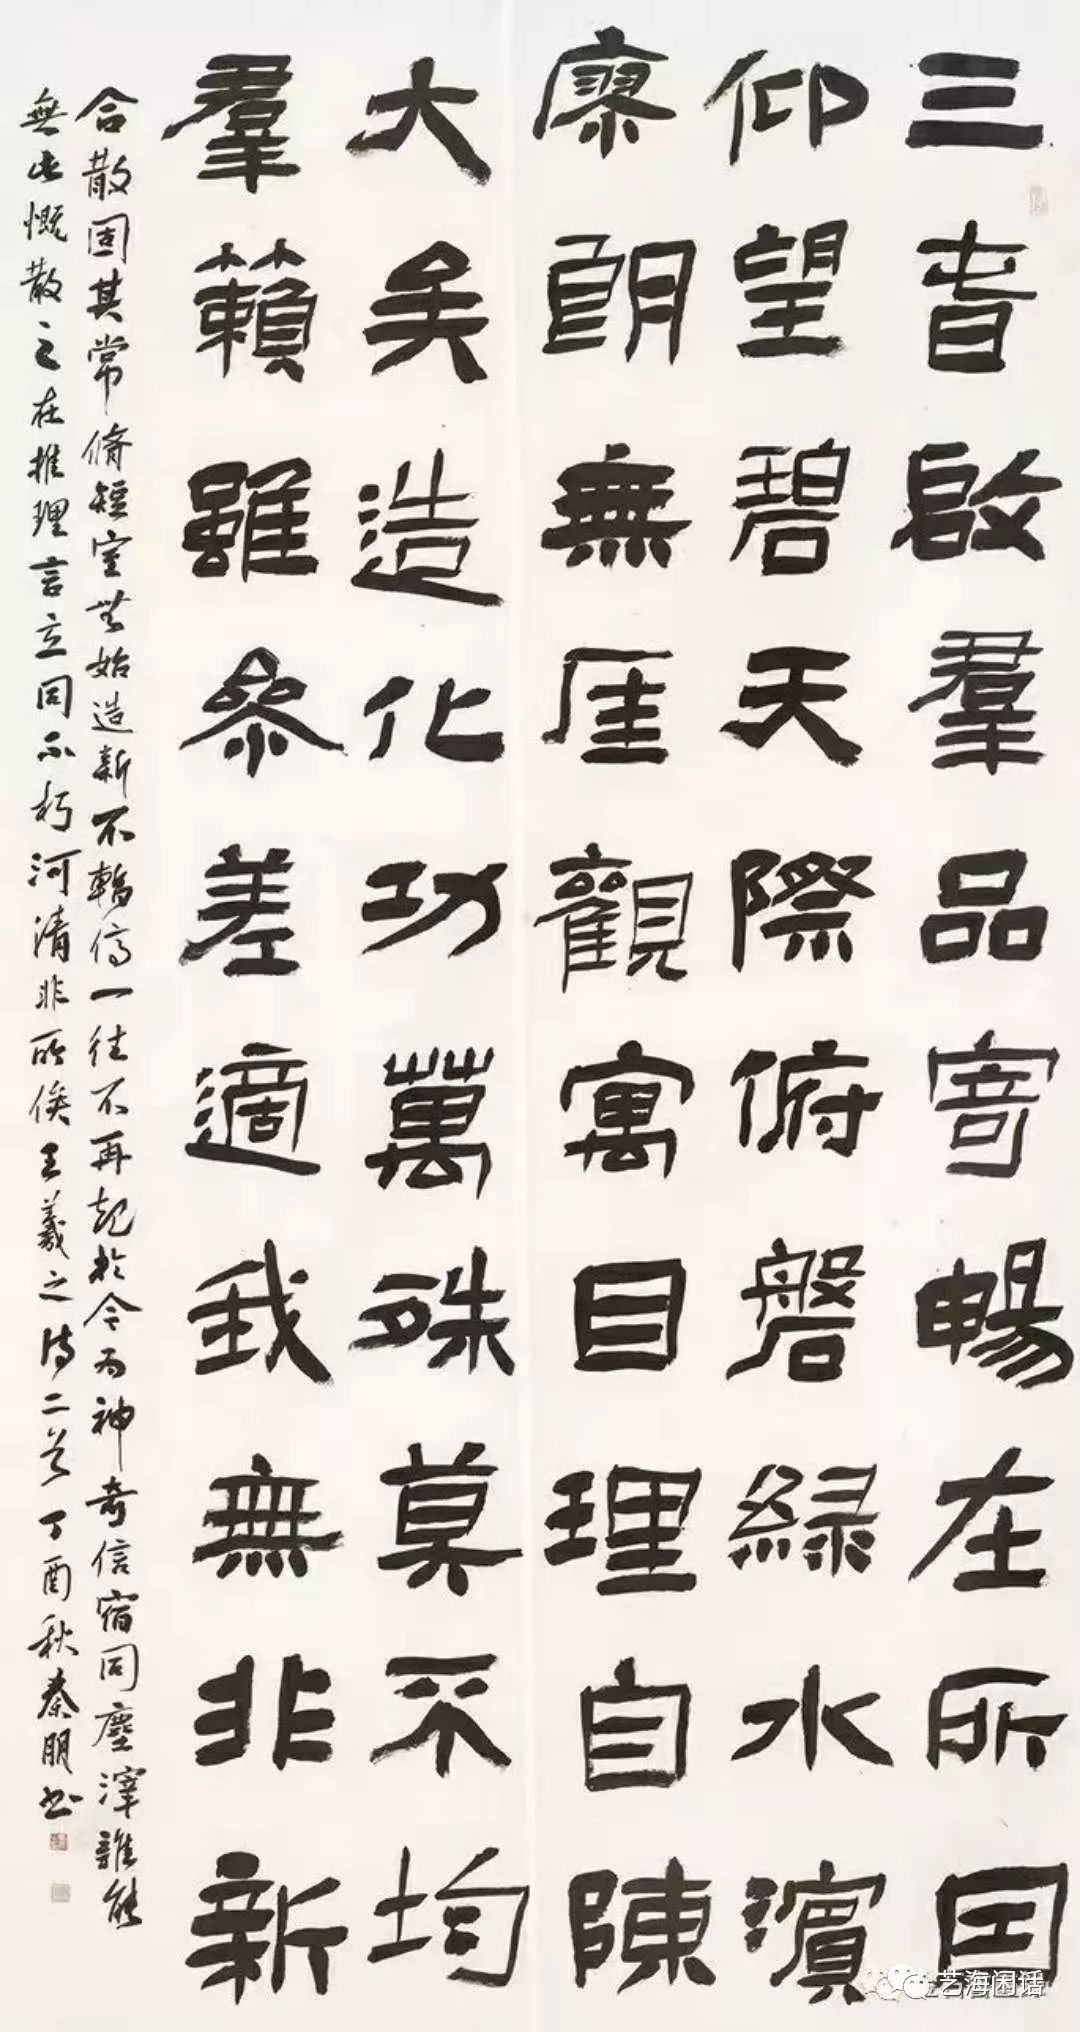 三旾啟羣品寄暢在所因
仰望碧天際俯磐綠水濱
廖朗無厓觀寓目理自陳
大矣造化功萬殊莫不均
羣籟雖參差適我無非新
合散固其常脩短定無始造新不暫停一往不再起於今為神奇信宿同塵滓誰能
無此慨散之在推理言立同不朽河清非所俟王羲之詩二首丁酉秋秦朋书
艺海闲话